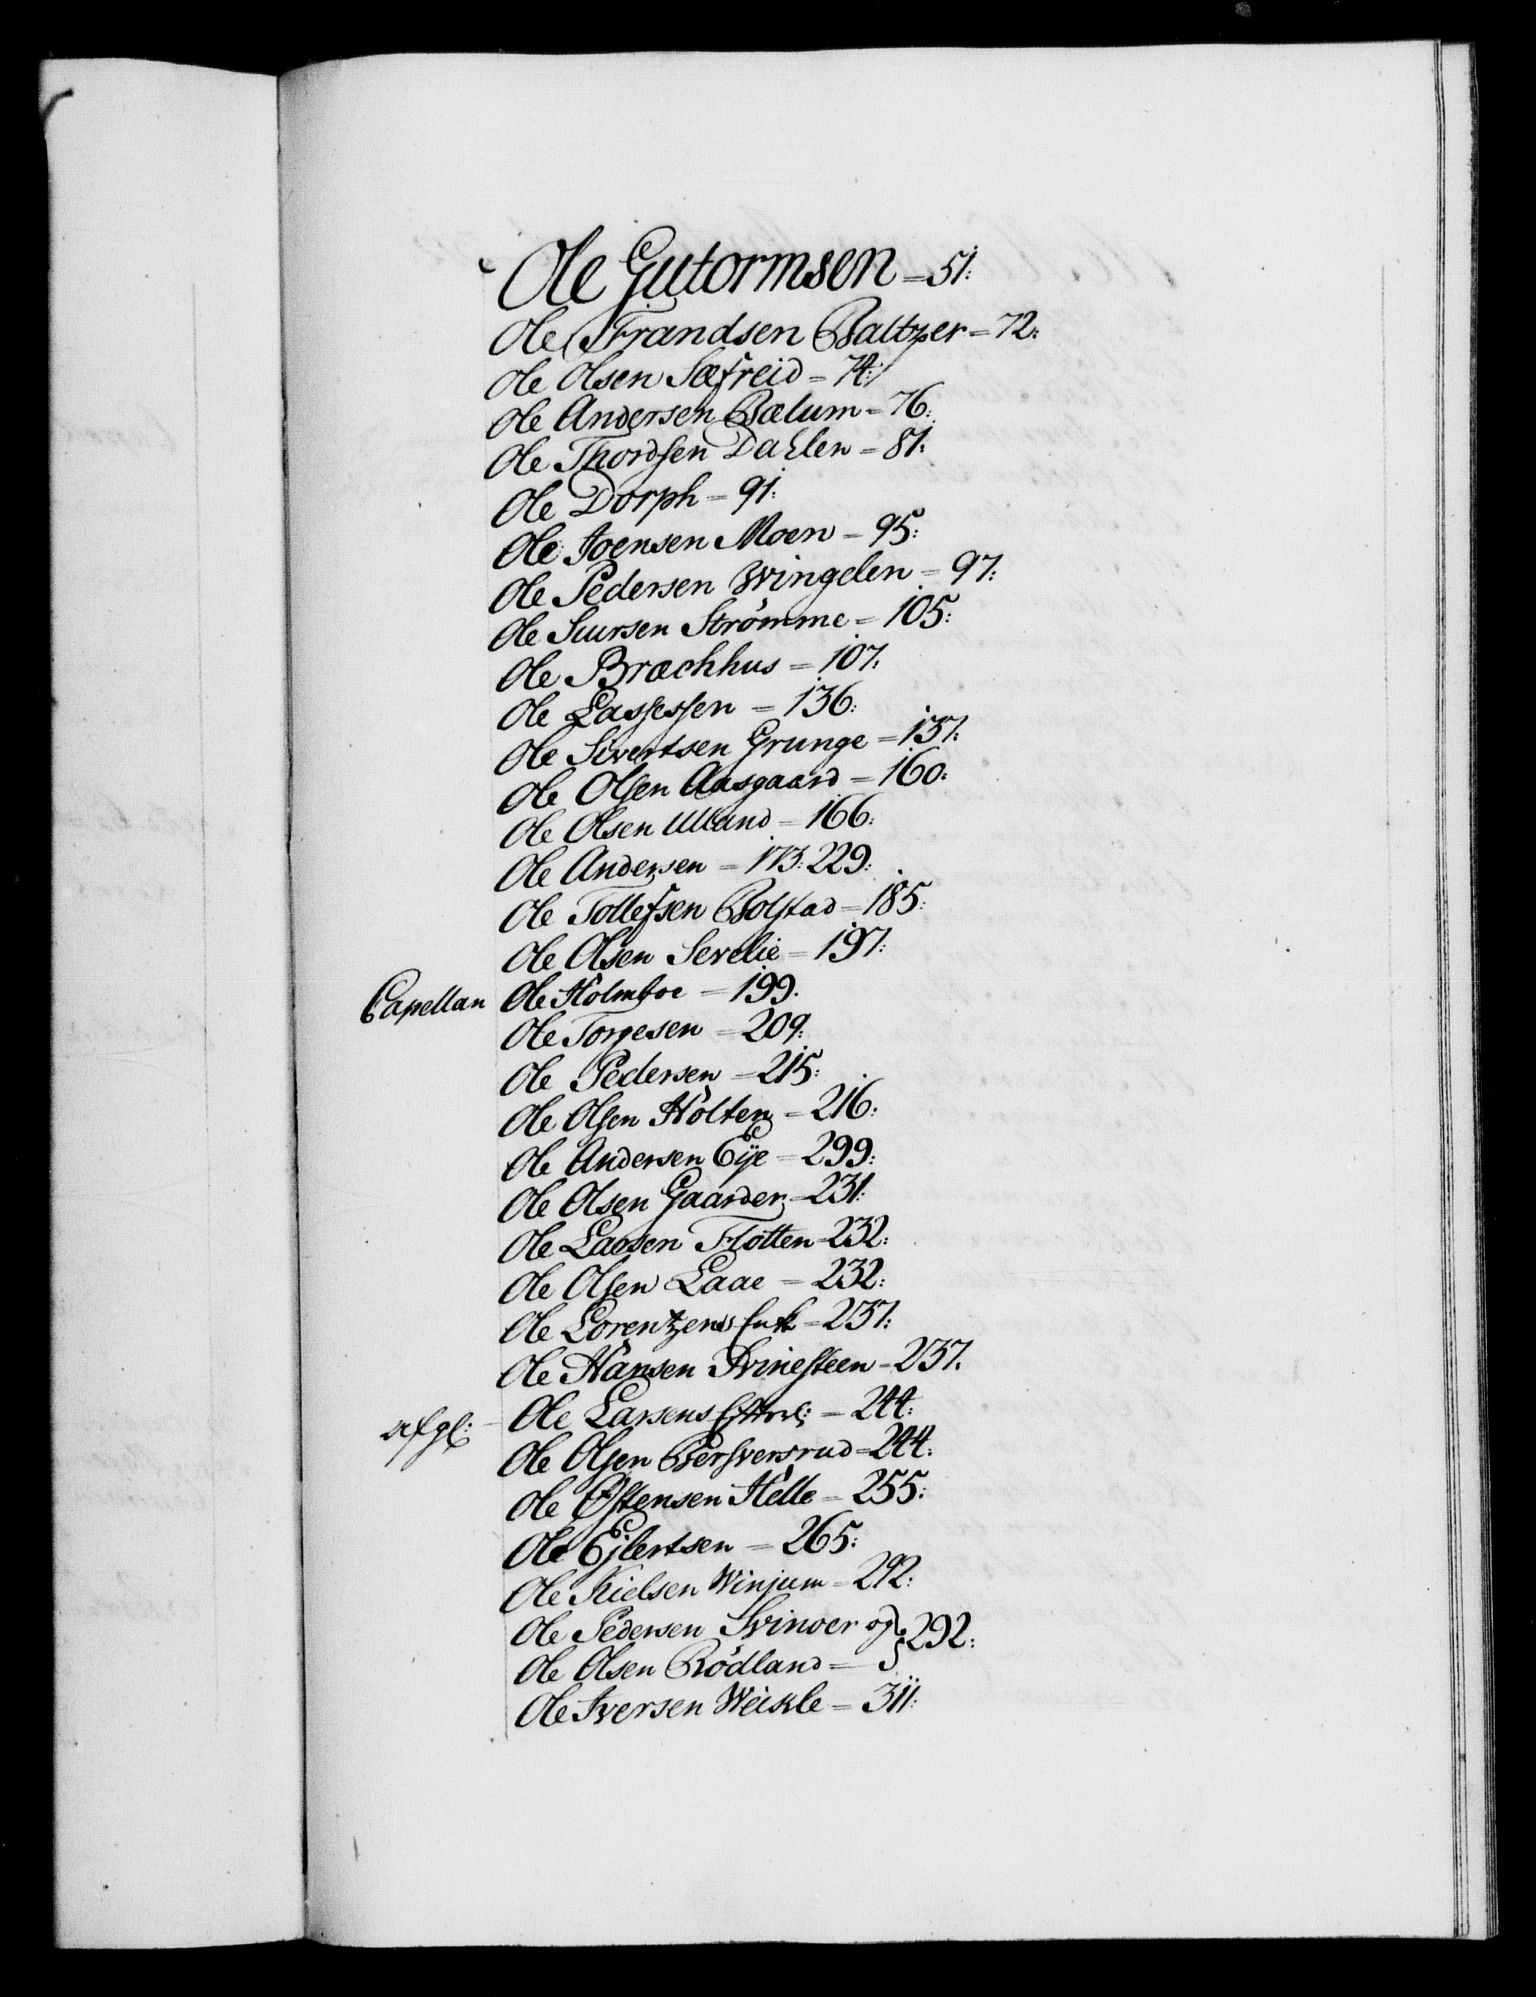 Ole Gutormsen = 51:
Ole Frandsen Baltzer = 72:
Ole Olsen Sæfreid = 74:
Ole Andersen Bælum = 76:
Ole Thordsen Dahlen = 81:
Ole Dorph = 91:
Ole Joensen Moen = 95:
Ole Pedersen Wingelen = 97:
Ole Siursen Strömme = 105:
Ole Bræchhus = 107:
Ole Lassessen = 136:
Ole Sivertsen Grunge = 137:
Ole Olsen Aasgaard = 160:
Ole Olsen Ulland = 166:
Ole Andersen = 173: 229:
Ole Tollefsen Bolstad = 185:
Ole Olsen Sevelie = 197:
Capellan Ole Holmboe = 199.
Ole Torgesen = 209:
Ole Pedersen = 215:
Ole Olsen Holten = 216:
Ole Andersen Eije = 299:
Ole Olsen Gaarder = 231:
Ole Larsen Flotten = 232:
Ole Olsen Laae = 232:
Ole Lorentzens Enk = 237:
Ole Hansen Svinesteen = 237.
afgl: Ole Larsens = 244:
Ole Olsen Bersversrud = 244:
Ole Østensen Helle = 255:
Ole Ejlertsen = 265:
Ole Nielsen Winjum = 292:
Ole Pedersen Svinoer og } 292:
Ole Olsen Rödland =
Ole Iversen Weikle = 311: